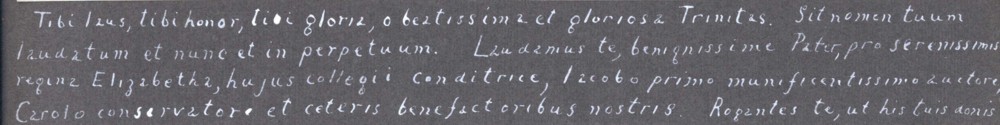 Tibi laus, tibi honor, tibi gloria, o beatissima et gloriosa Trinitas. Sit nomen tuum
laudatum et nunc et in perpetuum. Laudamus te, benignissime Pater, pro serenissimis
regina Elizabetha, hujus collegii conditrice, Iacobo primo munificentissimo auctore,
Carolo conservatore et ceteris benefactoribus nostris. Rogantes te, ut his tuis donis